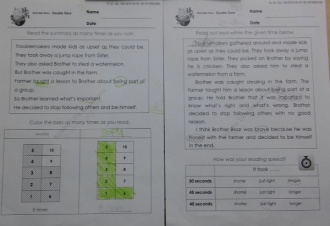 Name
Date
Read the summary as many times as you can.
Troublemakers made kids as upset as they could be.
They took away a jump rope from Sister.
They also asked Brother to steal a watermelon.
But Brother was caught in the farm.
Farmer taught a lesson to Brother about being part of
a group.
So Brother learned what's important.
He decided to stop following others and be himself.
Color the box as many times as you read.
5 10
4 9
3 8
2 7
1 6
5 10
4 9
3 8
2 7
1 6
Name
Date
Read out loud within the given time below.
Troublemakers gathered around and made kids
as upset as they could be. They took away a jump
rope from Sister. They picked on Brother by saying
he is chicken. They also asked him to steal a
watermelon from a farm.
Brother was caught stealing in the farm. The
farmer taught him a lesson about being part of a
group. He told Brother that it was important to
know what's right and what's wrong. Brother
decided to stop following others with no good
reason.
I think Brother Bear was brave because he was
honest with the farmer and decided to be himself
in the end.
How was your reading speed?
It took
50 seconds shorter just right longer
45 seconds shorter just right longer
40 seconds shorter just right longer